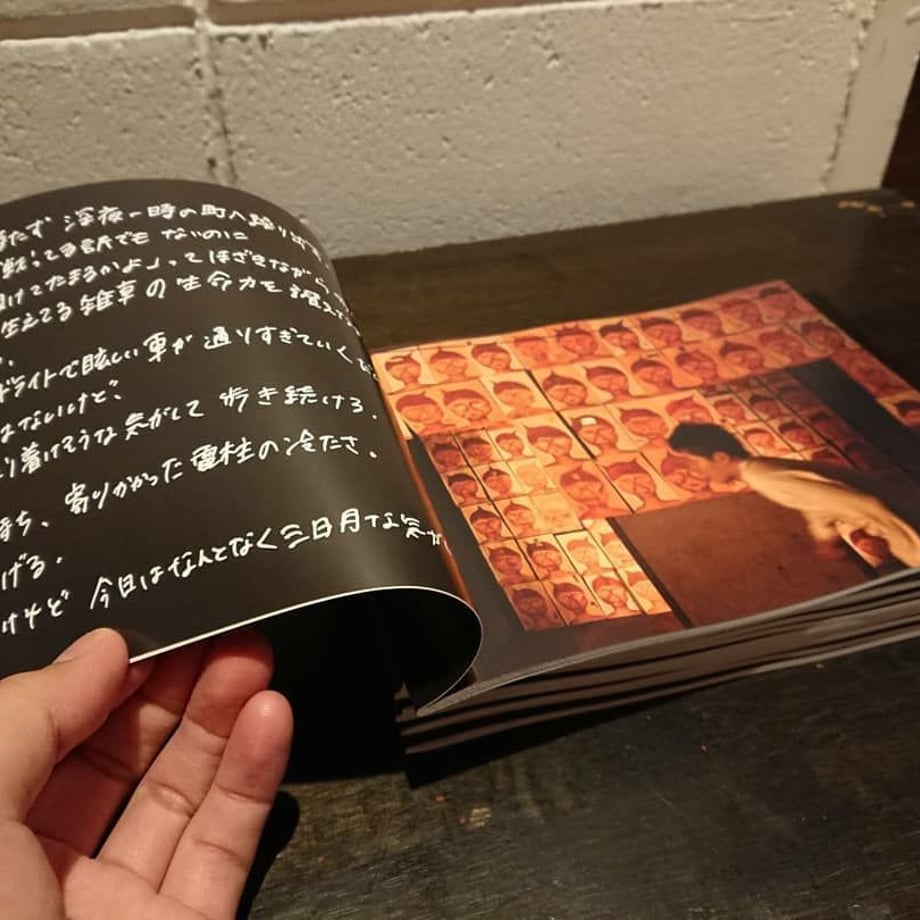 たず 深夜一時の町へ繰り
転してる訳でも ないのに
けてたまるかよ」ってほざきながら
生えてる雑草の生命力を
ドライトで眩しい車が通りすぎていく
はないけど、
り着けそうな気がして 歩き続ける。
持ち、寄りかかった電柱の冷たさ。
げる。
けれど 今日はなんとなく三日月な気が